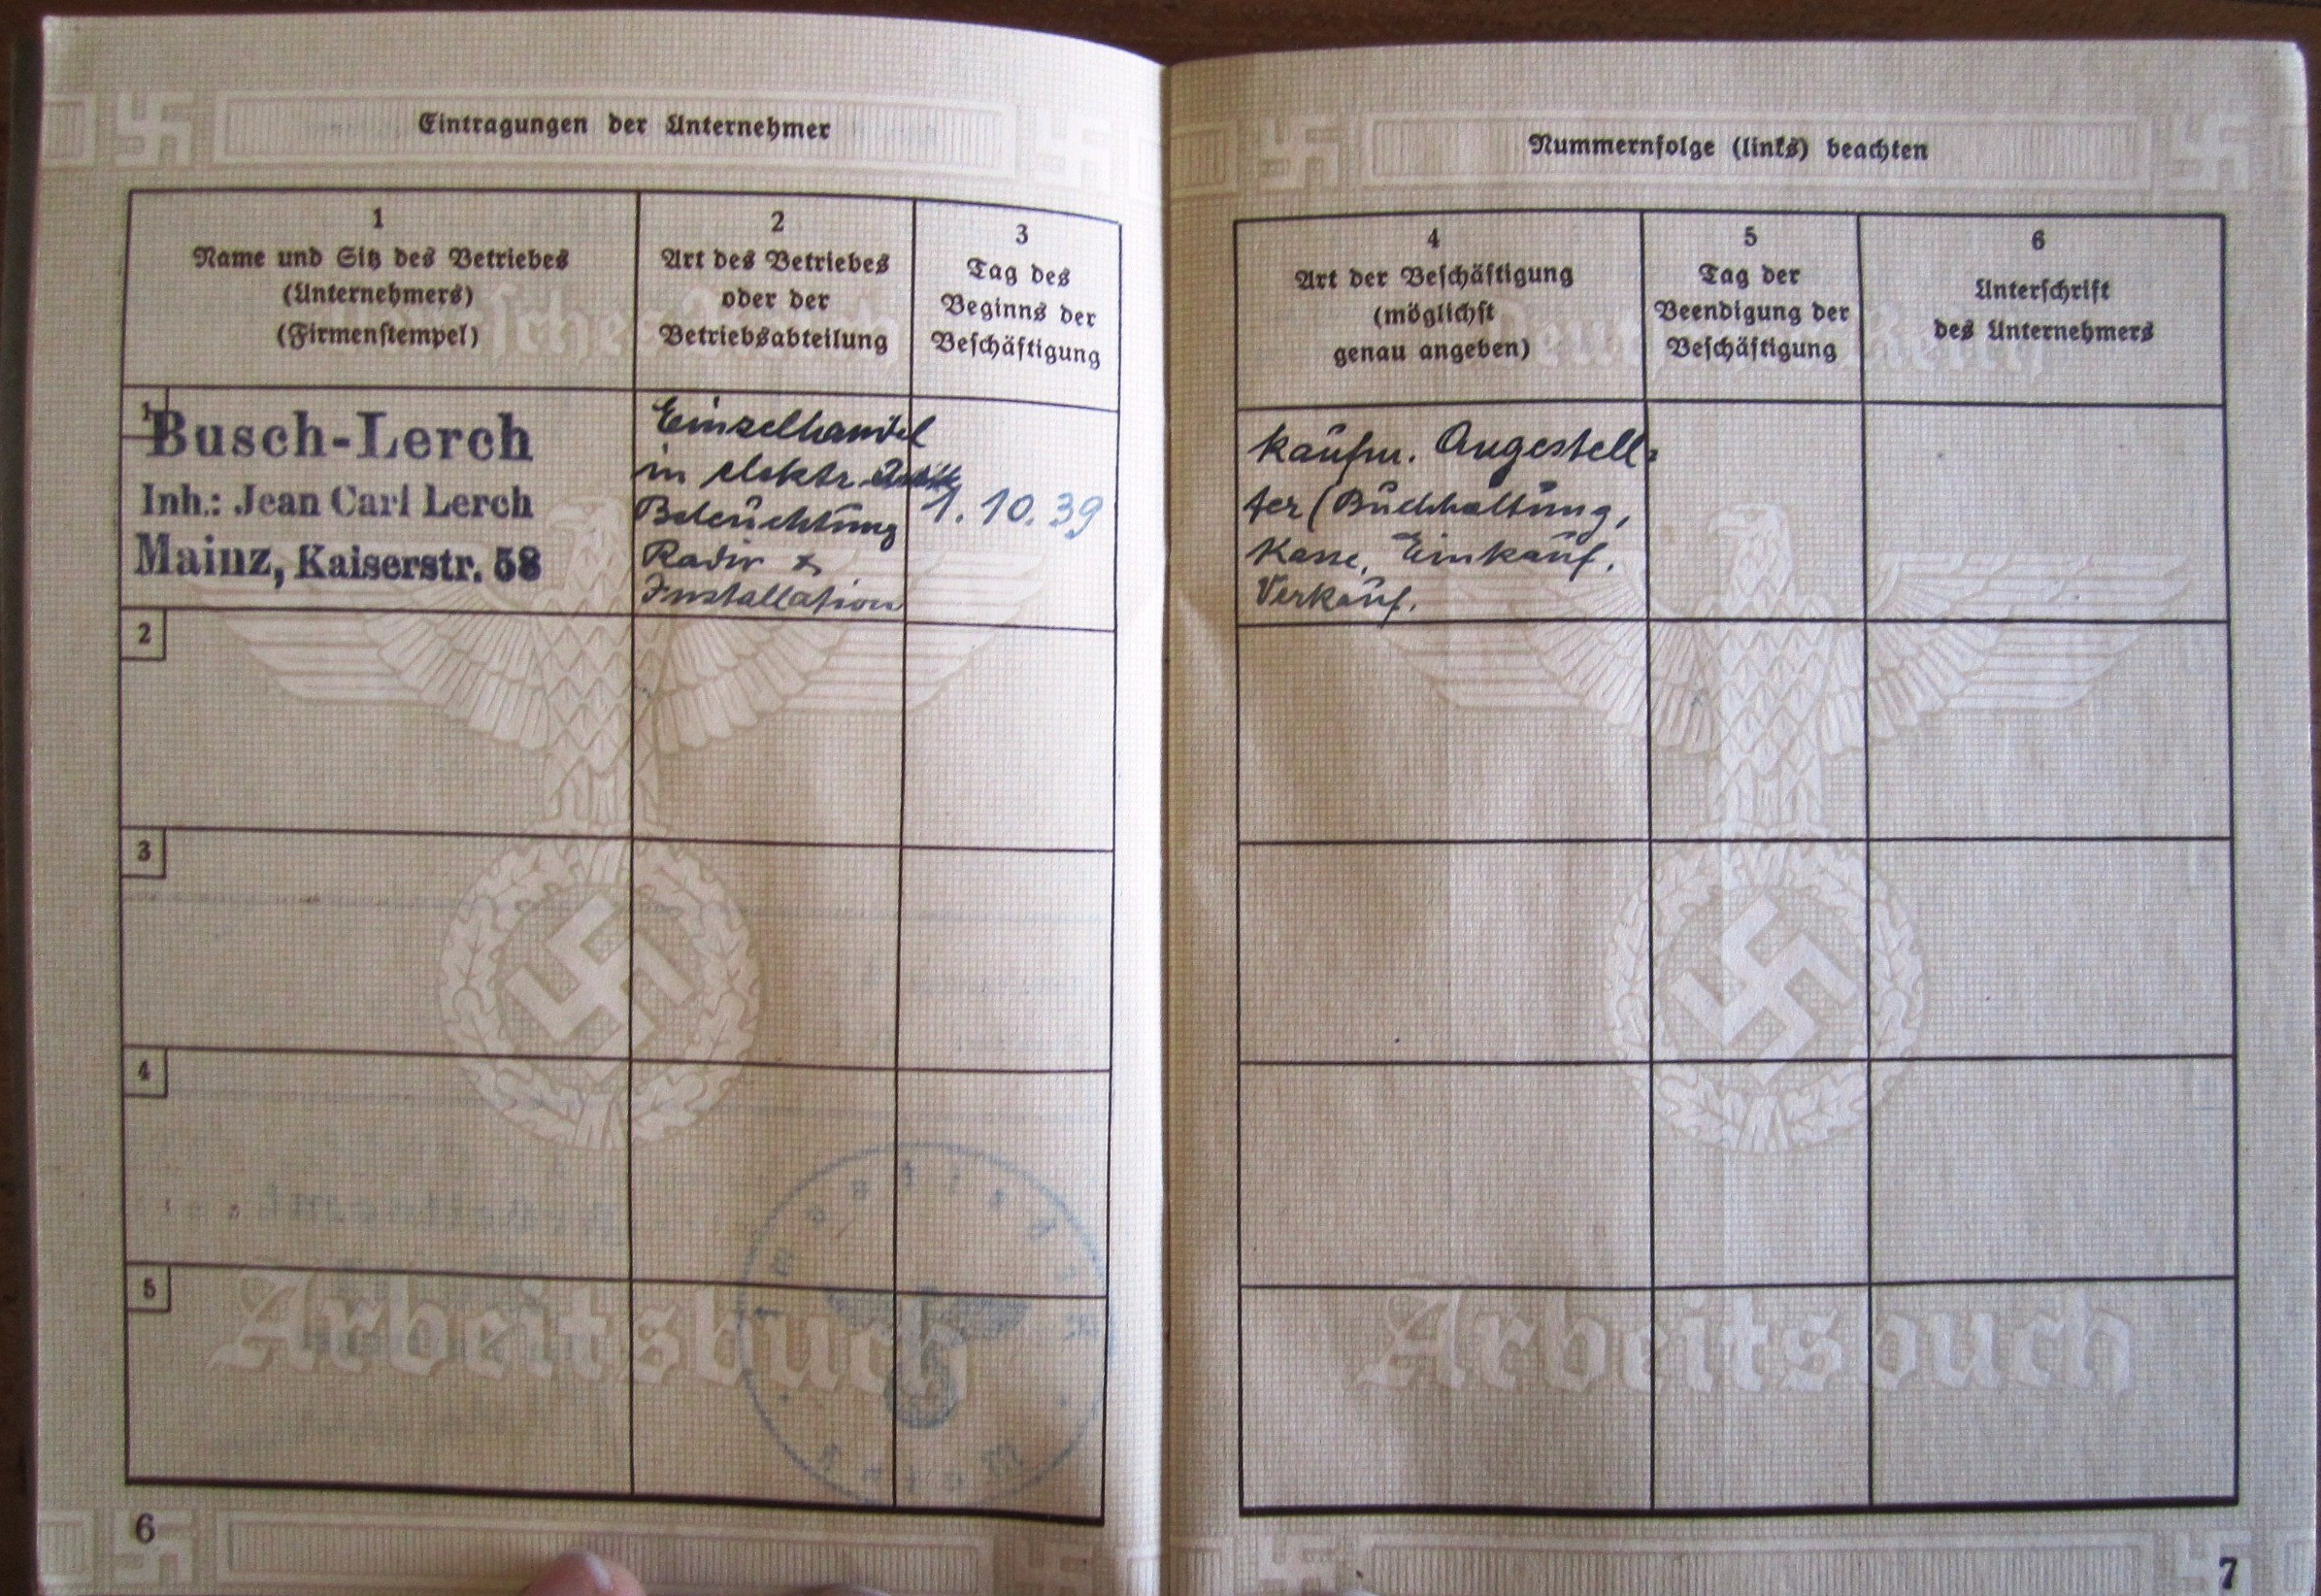 Eintragungen der Unternehmer
1
Name und Sitz des Betriebes
(Unternehmers)
(Firmenstempel)
2
Art des Betriebes
oder der
Betriebsabteilung
3
Tag des
Beginns der
Beschäftigung
1
Busch-Lerch
Inh.: Jean Carl Lerch
Mainz, Kaiserstr. 58
Einzelhandel
in elektr.
Beleuchtung
Radio &
Installation
1. 10. 39
2
3
4
5
Arbeitsbuch
6
Nummernfolge (links) beachten
4
Art der Beschäftigung
(möglichst
genau angeben)
5
Tag der
Beendigung der
Beschäftigung
6
Unterschrift
des Unternehmers
kaufm. Angestell-
ter (Buchhaltung,
Kasse, Einkauf,
Verkauf.
Deutsches Reich
Arbeitsbuch
7